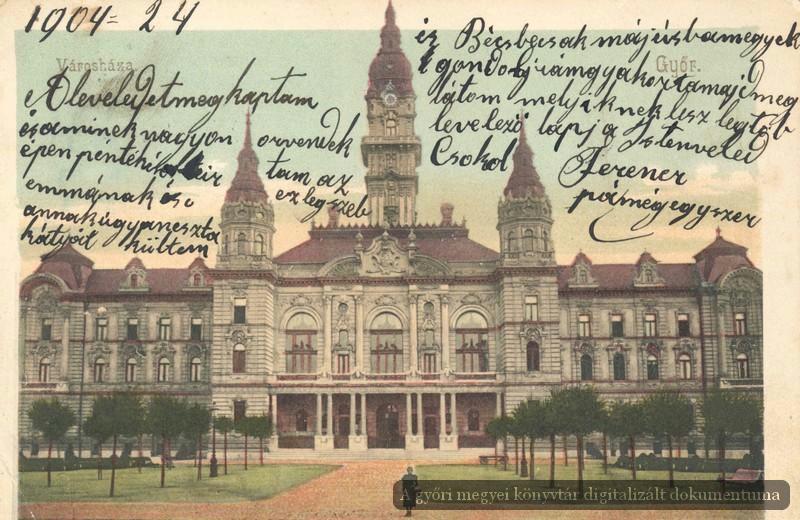 1904 = 24
Városháza
Győr.
A leveledet megkaptam
és aminek nagyon örvendek
épen péntekis tam az
emmának és ez legszeb
annak ugyanezta
kátyát kültem
és Bécsbe csak májusba megyek
gondolj rám gyakorta majd meg
látom melyiknek lesz legtöb
levelező lapja Isten veled
Csokol Ferencz
pá még egyszer
A győri megyei könyvtár digitalizált dokumentuma